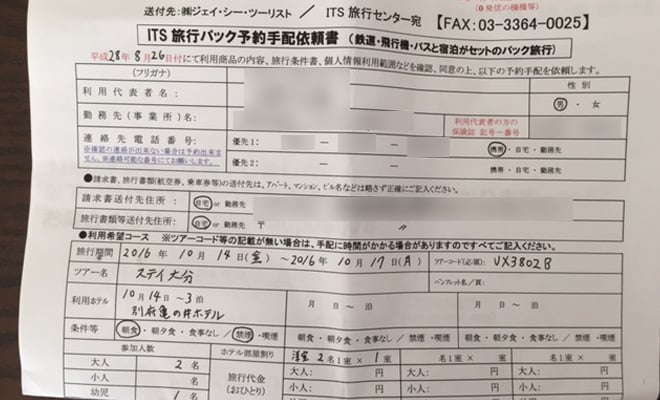 (0発信の機種等)
送付先:㈱ジェイ・シー・ツーリスト / ITS 旅行センター宛 【FAX:03-3364-0025】
ITS 旅行パック予約手配依頼書 (鉄道・飛行機・バスと宿泊がセットのパック旅行)
平成28年8月26日付にて利用商品の内容、旅行条件書、個人情報利用範囲などを確認、同意の上、以下の予約手配を依頼します。
(フリガナ) 性別
利用代表者名: 男・女
勤務先(事業所)名: 利用代表者の方の 保険証 記号ー番号
連絡先電話番号: 優先1: ー ー 携帯・自宅・勤務先
※確認の連絡が出来ない場合は予約出来ません。※連絡可能な番号にてお願いします。
優先2: ー ー 携帯・自宅・勤務先
●請求書、旅行書類(航空券、乗車券等)の送付先は、アパート、マンション、ビル名などは略さず正確にご記入ください。
請求書送付先住所: 自宅 or 勤務先
旅行書類等送付先住所: 自宅 or 勤務先 〒 〃
●利用希望コース ※ツアーコード等の記載が無い場合は、手配に時間がかかる場合がありますのですべてご記入ください。
旅行期間 2016年10月14日(金)~2016年10月17日(月) ツアーコード(必須): VX3802B
ツアー名 ステイ大分 パンフレット名/頁:
利用ホテル 10月14日~3泊 月 日~ 泊 月 日~ 泊
別府亀の井ホテル
条件等 朝食・朝夕食・食事なし/禁煙・喫煙 朝食・朝夕食・食事なし/禁煙・喫煙 朝食・朝夕食・食事なし/禁煙・喫煙
参加人数 ホテル部屋割り 洋室2名1室×1室 名1室× 室 名1室× 室
大人 2名 旅行代金 (おひとり) 大人: 円 大人: 円 大人: 円
小人 名 小人: 円 小人: 円 小人: 円
幼児 1名